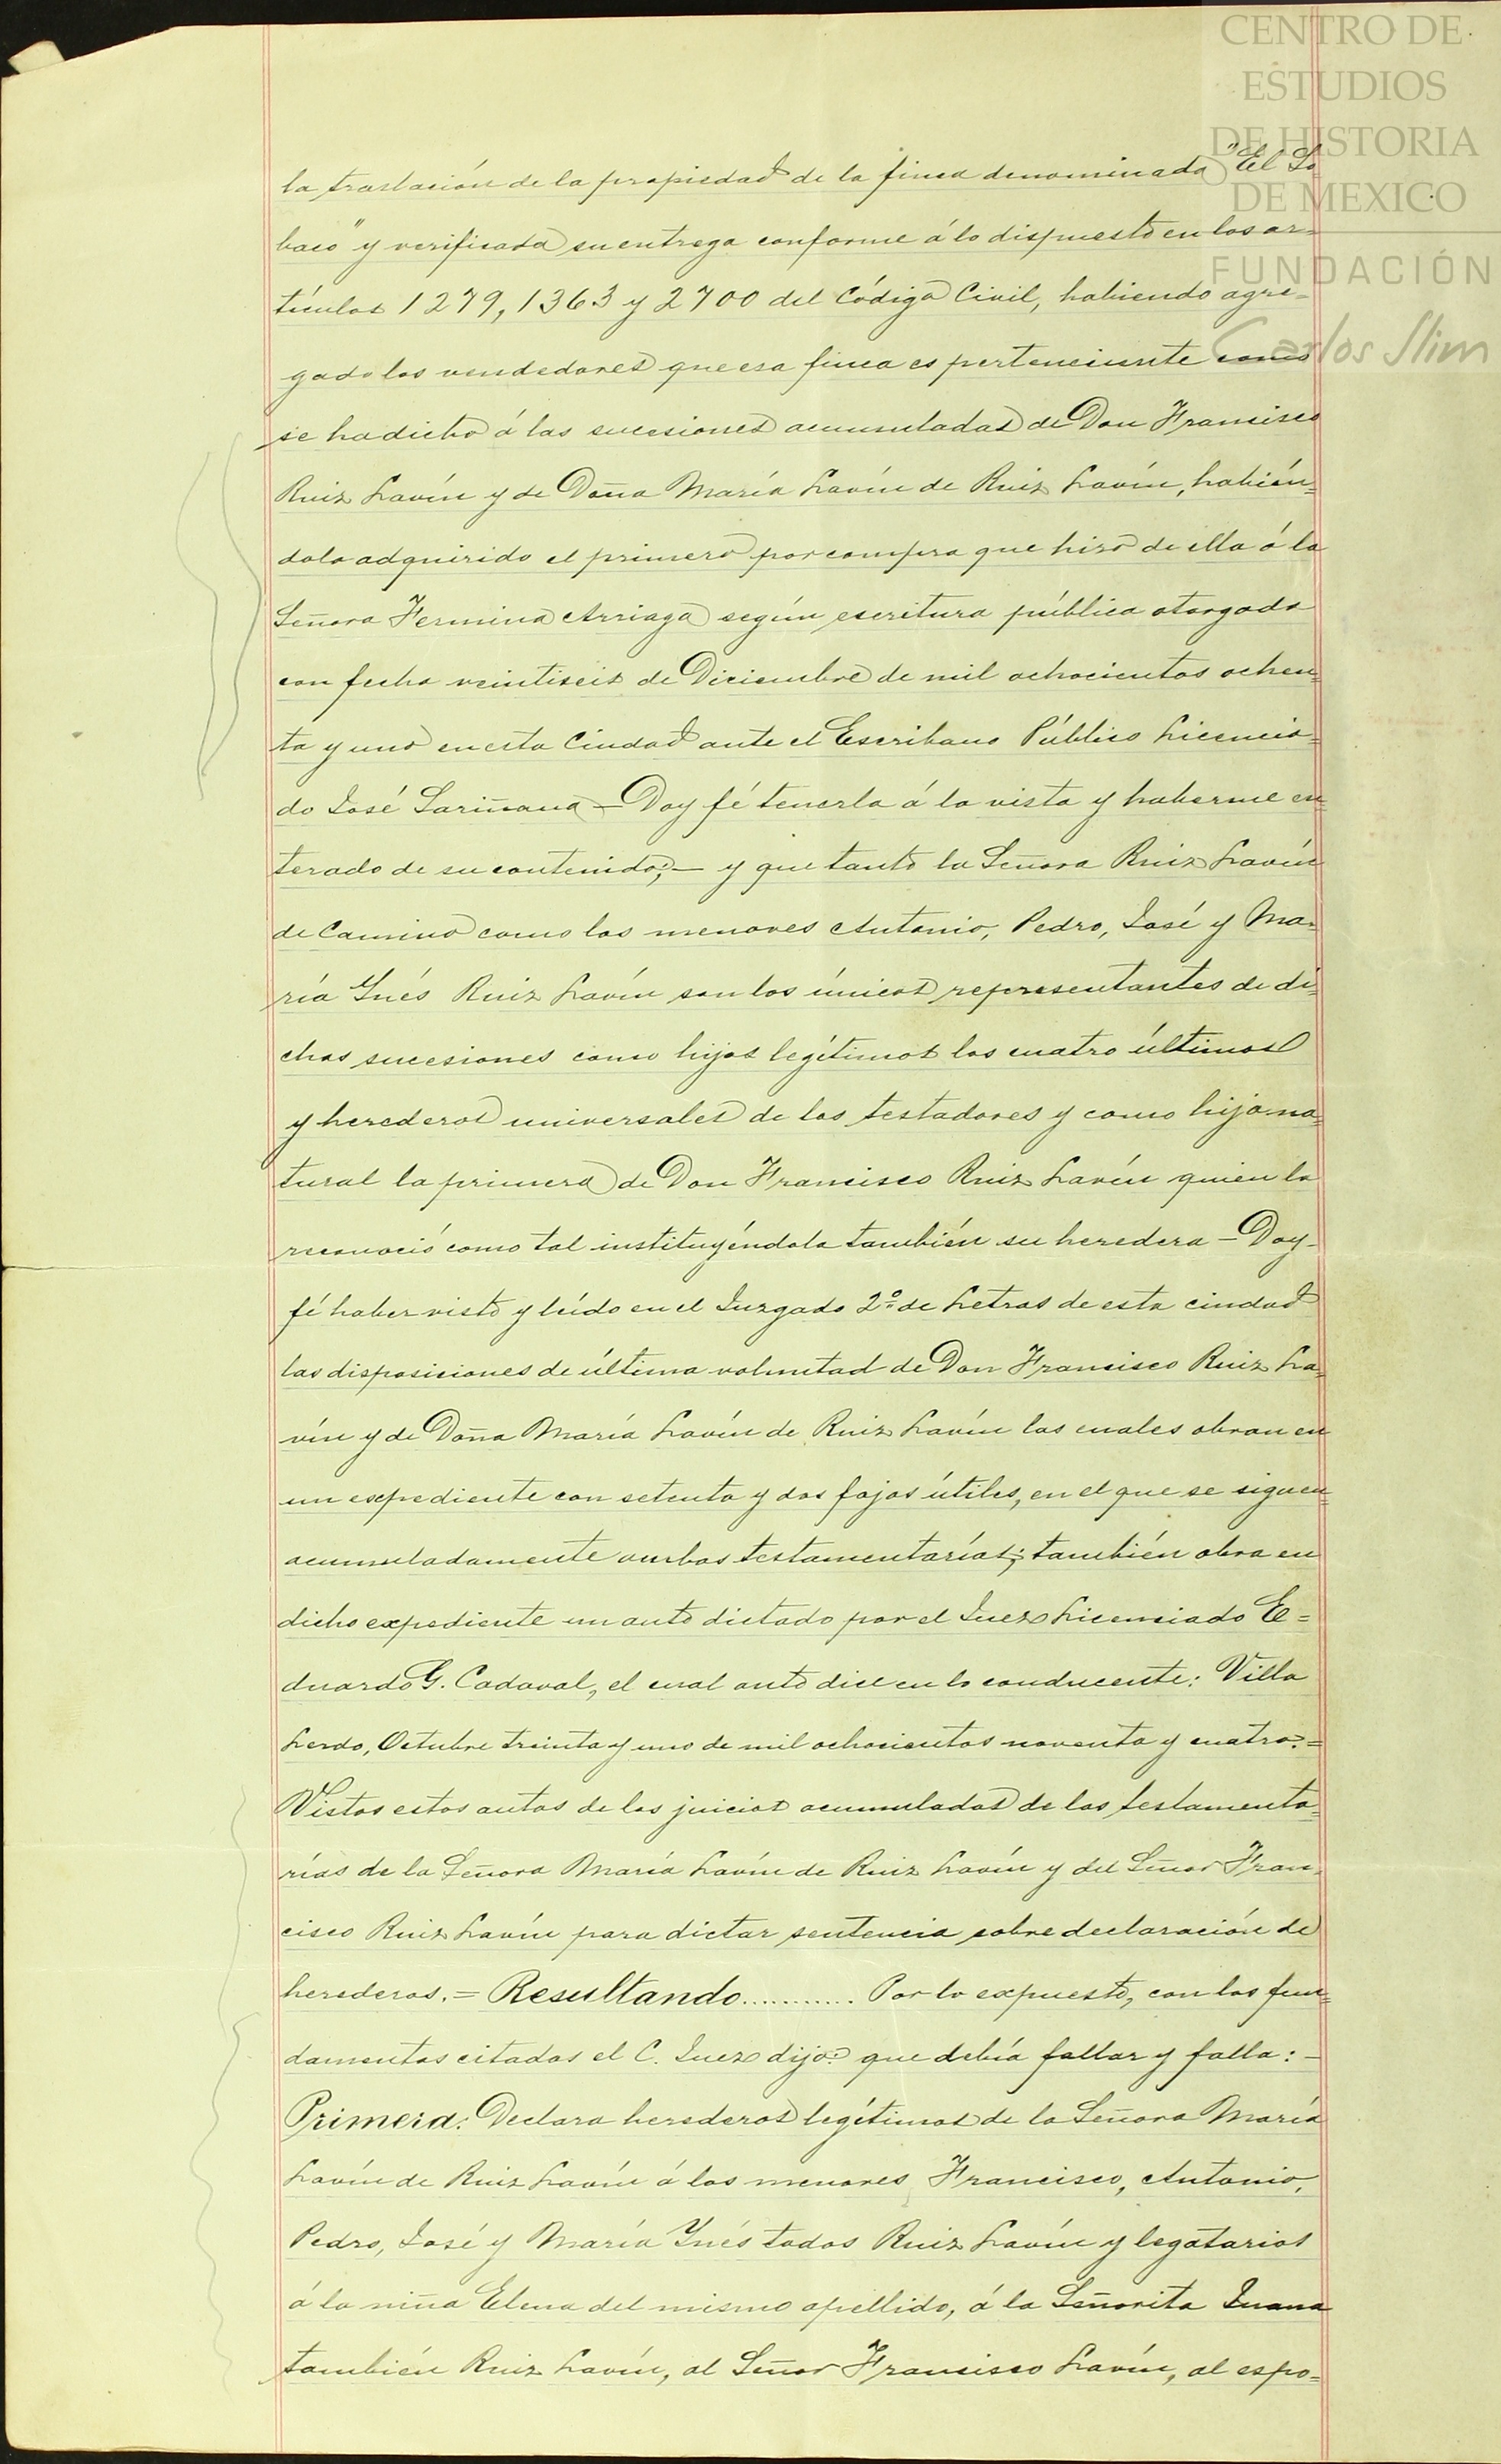 CENTRO DE
ESTUDIOS
DE HISTORIA
DE MEXICO
FUNDACIÓN
Carlos Slim
la traslación de la propiedad de la finca denominada "El Lo
baco" y verificada su entrega conforme á lo dispuesto en los ar=
tículos 1279, 1363 y 2700 del Código Civil, habiendo agre=
gado los vendedores que esa finca es perteneciente como
se ha dicho á las sucesiones acumuladas de Don Francisco
Ruiz Lavín y de Doña María Lavín de Ruiz Lavín, habién=
dola adquirido el primero por compra que hizo de ella á la
Señora Fermina Arriaga según escritura pública otorgada
con fecha veintiseis de Diciembre de mil ochocientos ochen=
ta y uno en esta Ciudad ante el Escribano Público Licencia=
do José Sariñana – Doy fé tenerla á la vista y haberme en
terado de su contenido; – y que tanto la Señora Ruiz Lavín
de Camino como los menores Antonio, Pedro, José y Ma=
ría Ynés Ruiz Lavín son los únicos representantes de di=
chas sucesiones como hijos legítimos los cuatro últimos
y herederos universales de los testadores y como hija na=
tural la primera de Don Francisco Ruiz Lavín quien la
reconoció como tal instituyéndola también su heredera – Doy
fé haber visto y leído en el Juzgado 2º de Letras de esta ciudad
las disposiciones de última voluntad de Don Francisco Ruiz La=
vín y de Doña María Lavín de Ruiz Lavín las cuales obran en
un expediente con setenta y dos fojas útiles, en el que se siguen
acumuladamente ambas testamentarías; también obra en
dicho expediente un auto dictado por el Juez Licenciado E=
duardo G. Cadaval, el cual auto dice en lo conducente: Villa
Lerdo, Octubre treinta y uno de mil ochocientos noventa y cuatro. =
Vistos estos autos de los juicios acumulados de las testamenta=
rías de la Señora María Lavín de Ruiz Lavín y del Señor Fran=
cisco Ruiz Lavín para dictar sentencia sobre declaración de
herederos. = Resultando........... Por lo expuesto, con los fun=
damentos citados el C. Juez dijo: que debía fallar y falla: –
Primera: Declara herederos legítimos de la Señora María
Lavín de Ruiz Lavín á los menores Francisco, Antonio,
Pedro, José y María Ynés todos Ruiz Lavín y legatarios
á la niña Elena del mismo apellido, á la Señorita Juana
también Ruiz Lavín, al Señor Francisco Lavín, al espo=